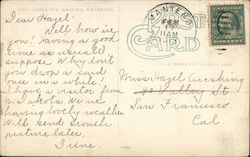 THIS SPACE FOR WRITING MESSAGES
MANTECA
FEB
11 AM
POST
CARD
Dear Hazel:
Well how are
you? Having a good
time as usual I
suppose. Why don't
you drop a card
once in a while. I
have a visitor from
Dakota. We are
having lovely weather
Will send Geneva's
picture later.
Irene.
Miss Hazel Cushing
Valley St.
San Francisco
Cal.